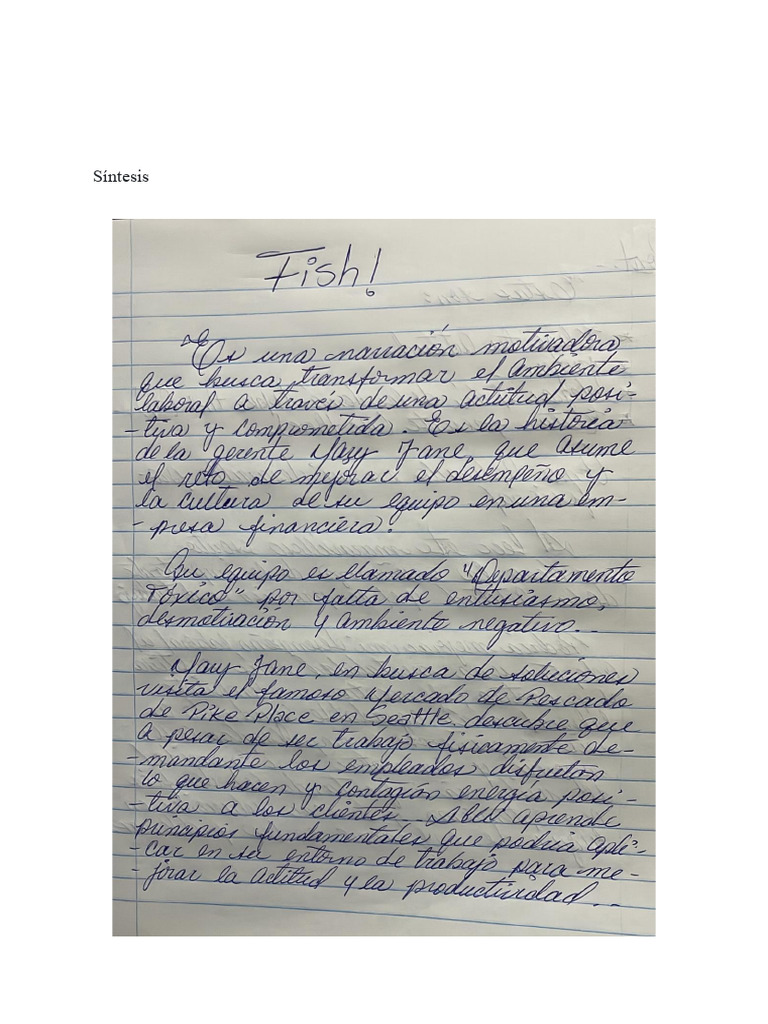 Síntesis
Fish!
Es una narración motivadora
que busca transformar el ambiente
laboral a través de una actitud posi-
-tiva y comprometida. Es la historia
de la gerente Mary Jane, que asume
el reto de mejorar el desempeño y
la cultura de su equipo en una em-
-presa financiera.
Su equipo es llamado "Departamento
Tóxico" por falta de entusiasmo,
desmotivación y ambiente negativo...
Mary Jane, en busca de soluciones
visita el famoso Mercado de Pescado
de Pike Place en Seattle. descubre que
a pesar de ser trabajo físicamente de-
-mandante los empleados disfrutan
lo que hacen y contagian energía posi-
-tiva a los clientes. Allí aprende
principios fundamentales que podría apli-
-car en su entorno de trabajo para me-
-jorar la actitud y la productividad...